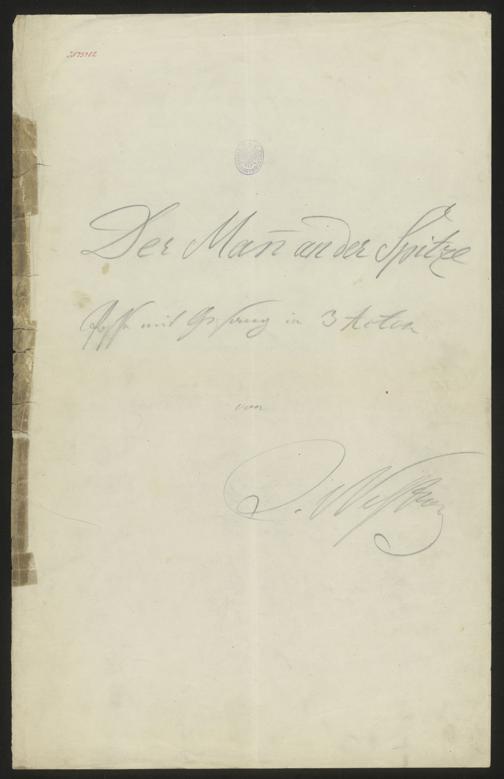 Der Man̄ an der Spitze
Posse mit Gesang in 3 Acten
von